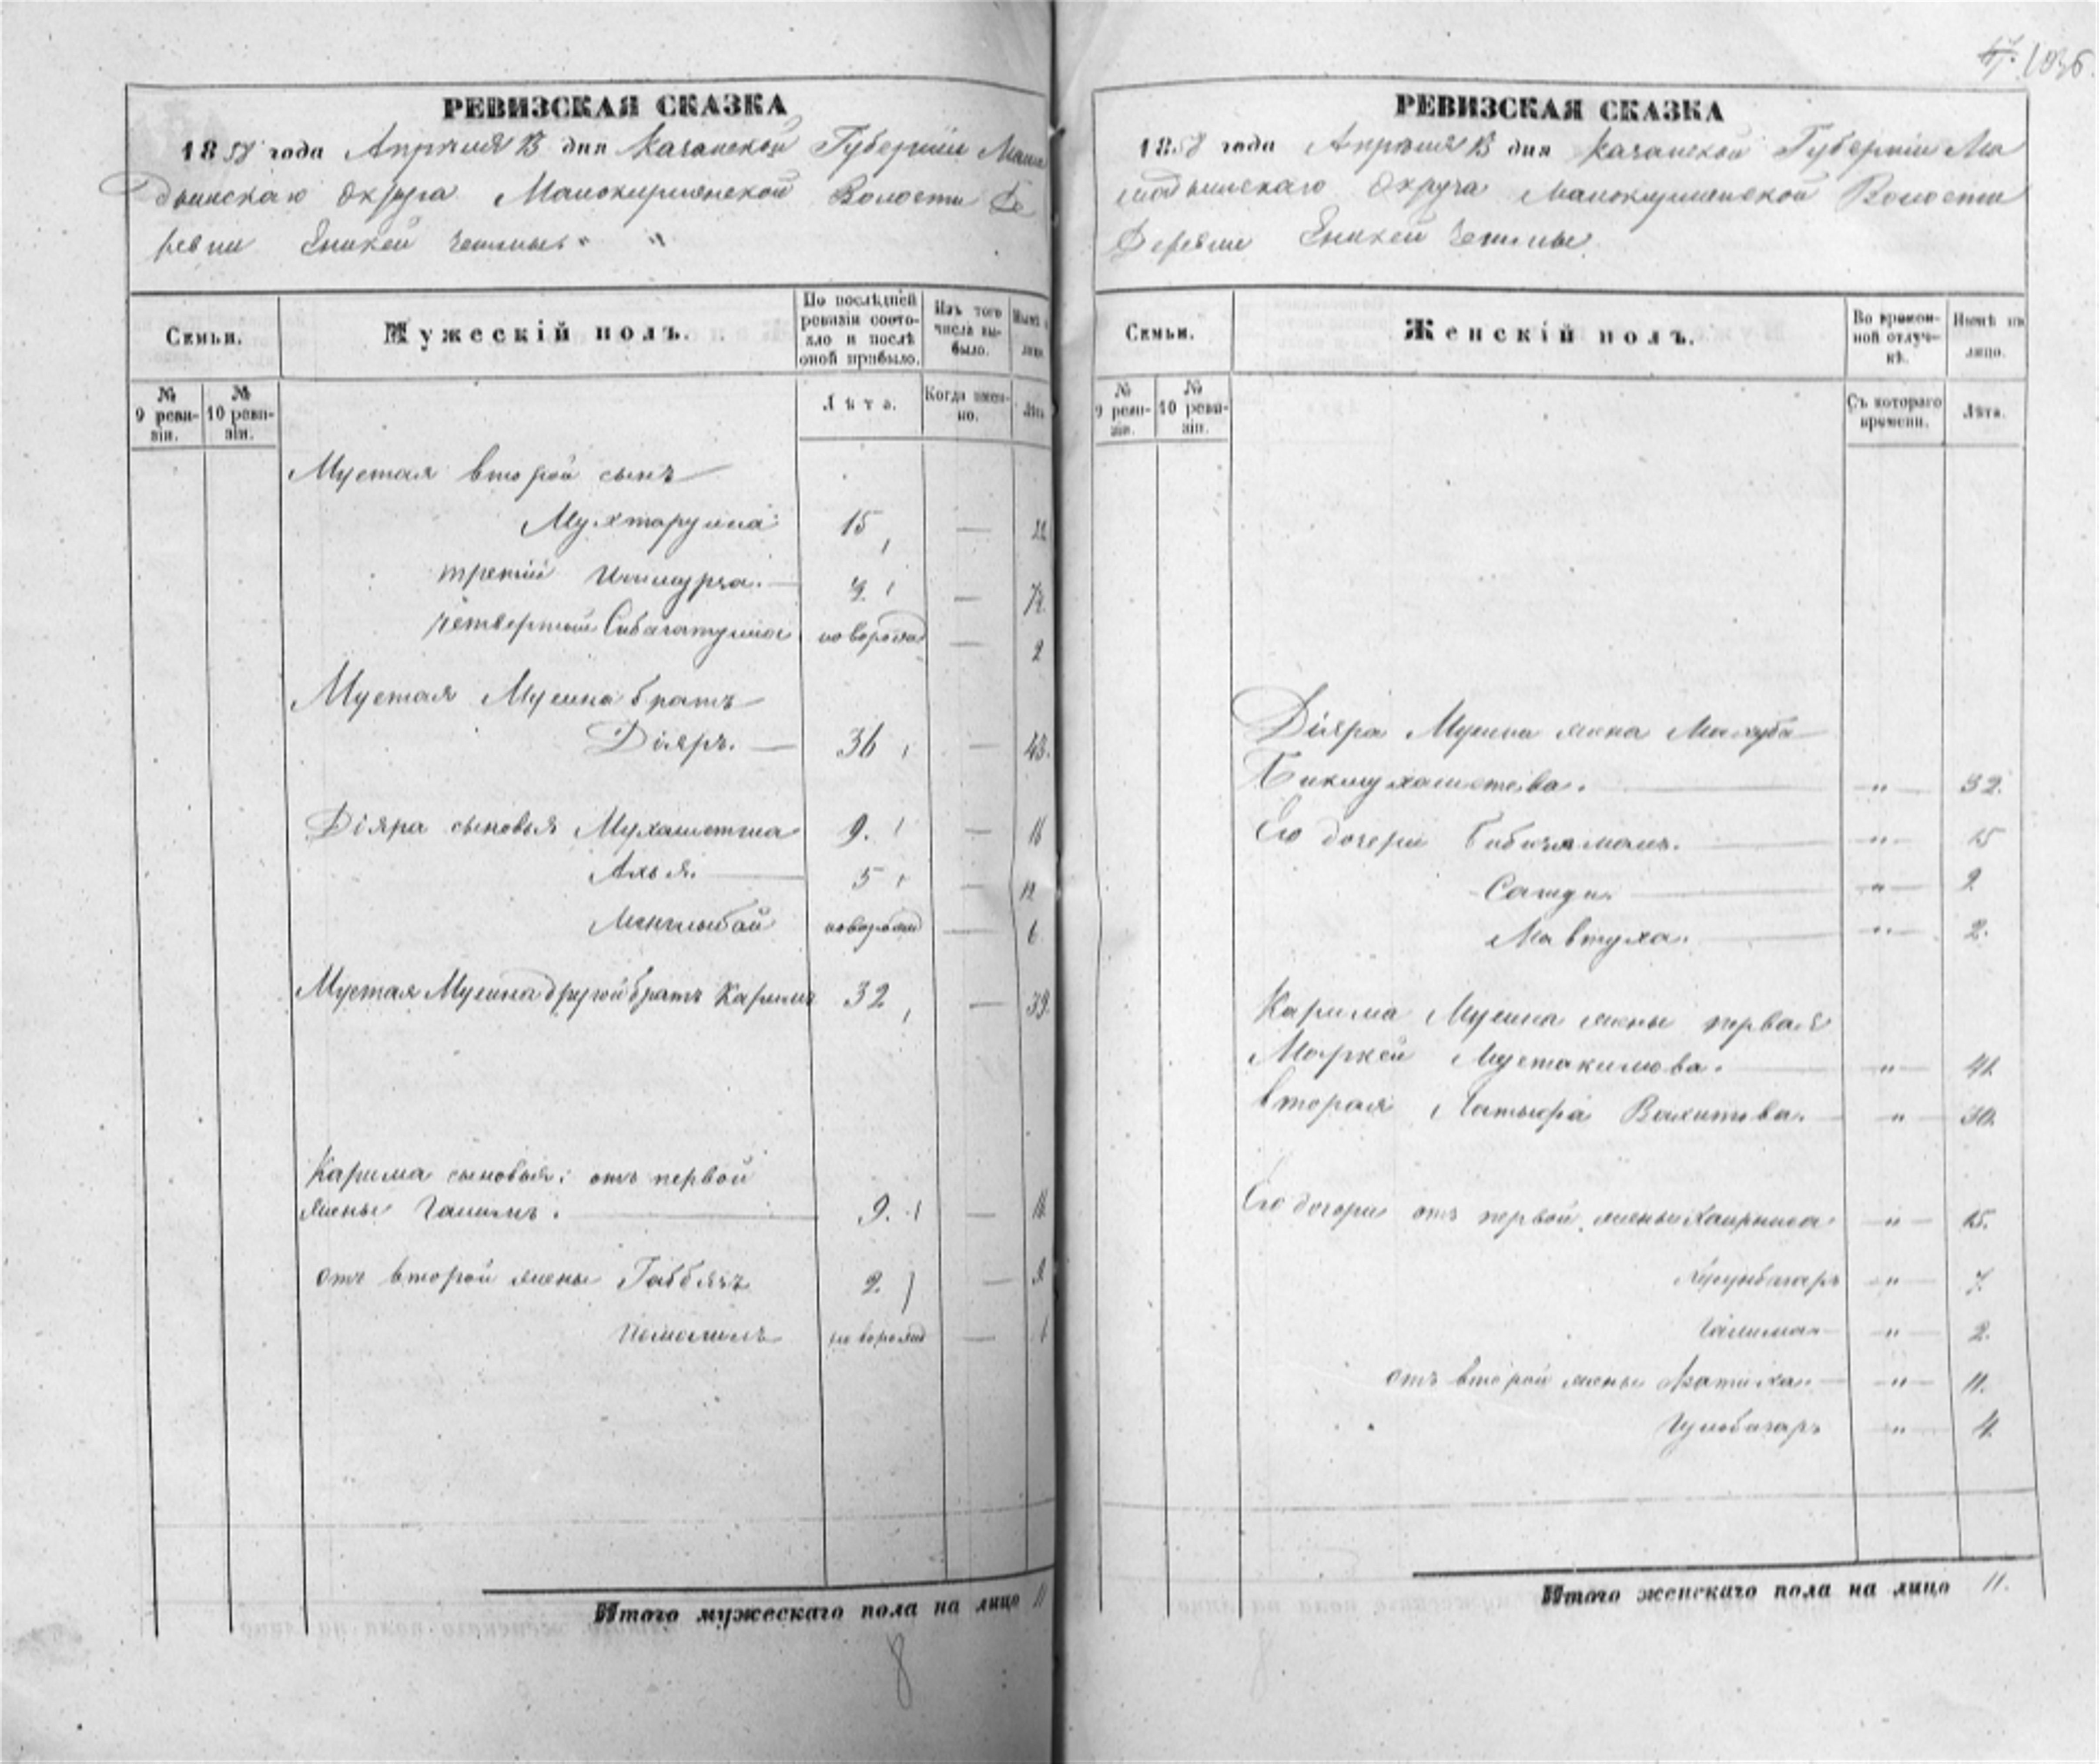 1036
РЕВИЗСКАЯ СКАЗКА
1858 года Апрѣля 13 дня Казанской Губерніи Мама
дышскаго Округа Малокирменской Волости Де
ревни Еникей Чешмы
Семьи.
Мужескій полъ.
По послѣдней ревизіи состояло и послѣ оной прибыло.
Изъ того числа выбыло.
Нынѣ на лицо.
№ 9 ревизіи.
№ 10 ревизіи.
Лѣта.
Когда именно.
Лѣта.
Мустая второй сынъ
Мухтарулла 15 — 22
третій Ишмурза. —
четвертый Сибагатулла новорожд — 2
Мустая Мусина братъ
Дiяръ. — 36 — 43.
Дiяра сыновья Мухаметша 9. — 16
Ахья. 5 — 12
Менглыбай новорожд — 6
Мустая Мусина другой братъ Каримъ 32 — 39.
Карима сыновья: отъ первой
жены Галимъ. 9. — 16
отъ второй жены 2 — 9
новорожд —
Итого мужескаго пола на лицо 11
8
РЕВИЗСКАЯ СКАЗКА
1858 года Апрѣля 13 дня Казанской Губерніи Ма
мадышскаго Округа Малокирменской Волости
Деревни Еникей Чешмы
Семьи.
Женскій полъ.
Во временной отлучкѣ.
Нынѣ на лицо.
№ 9 ревизіи.
№ 10 ревизіи.
Съ котораго времени.
Лѣта.
Дiяра Мусина жена Махуба
Бикмухаметева. — " — 32.
Его дочери Бибижамалъ. — " — 15
— " — 9.
Мавтуха. — " — 2.
Карима Мусина жены первая
Мустакимова. — " — 41.
вторая Вахитова. — " — 30.
Его дочери отъ первой жены Хаирниса — " — 15.
— " — 7.
Галима — " — 2.
отъ второй жены Фатиха — " — 11.
Гульбагаръ — " — 4.
Итого женскаго пола на лицо 11.